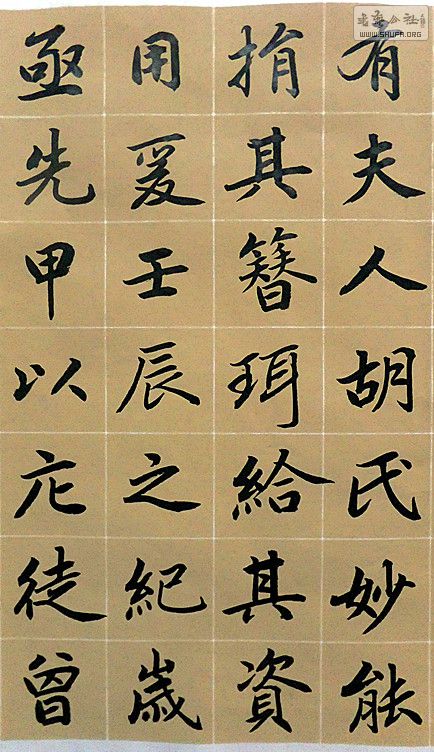 有夫人胡氏妙能
捐其簪珥給其資
用爰壬辰之紀歲
亟先甲以庀徒曾
公社
WWW.SHUFA.ORG